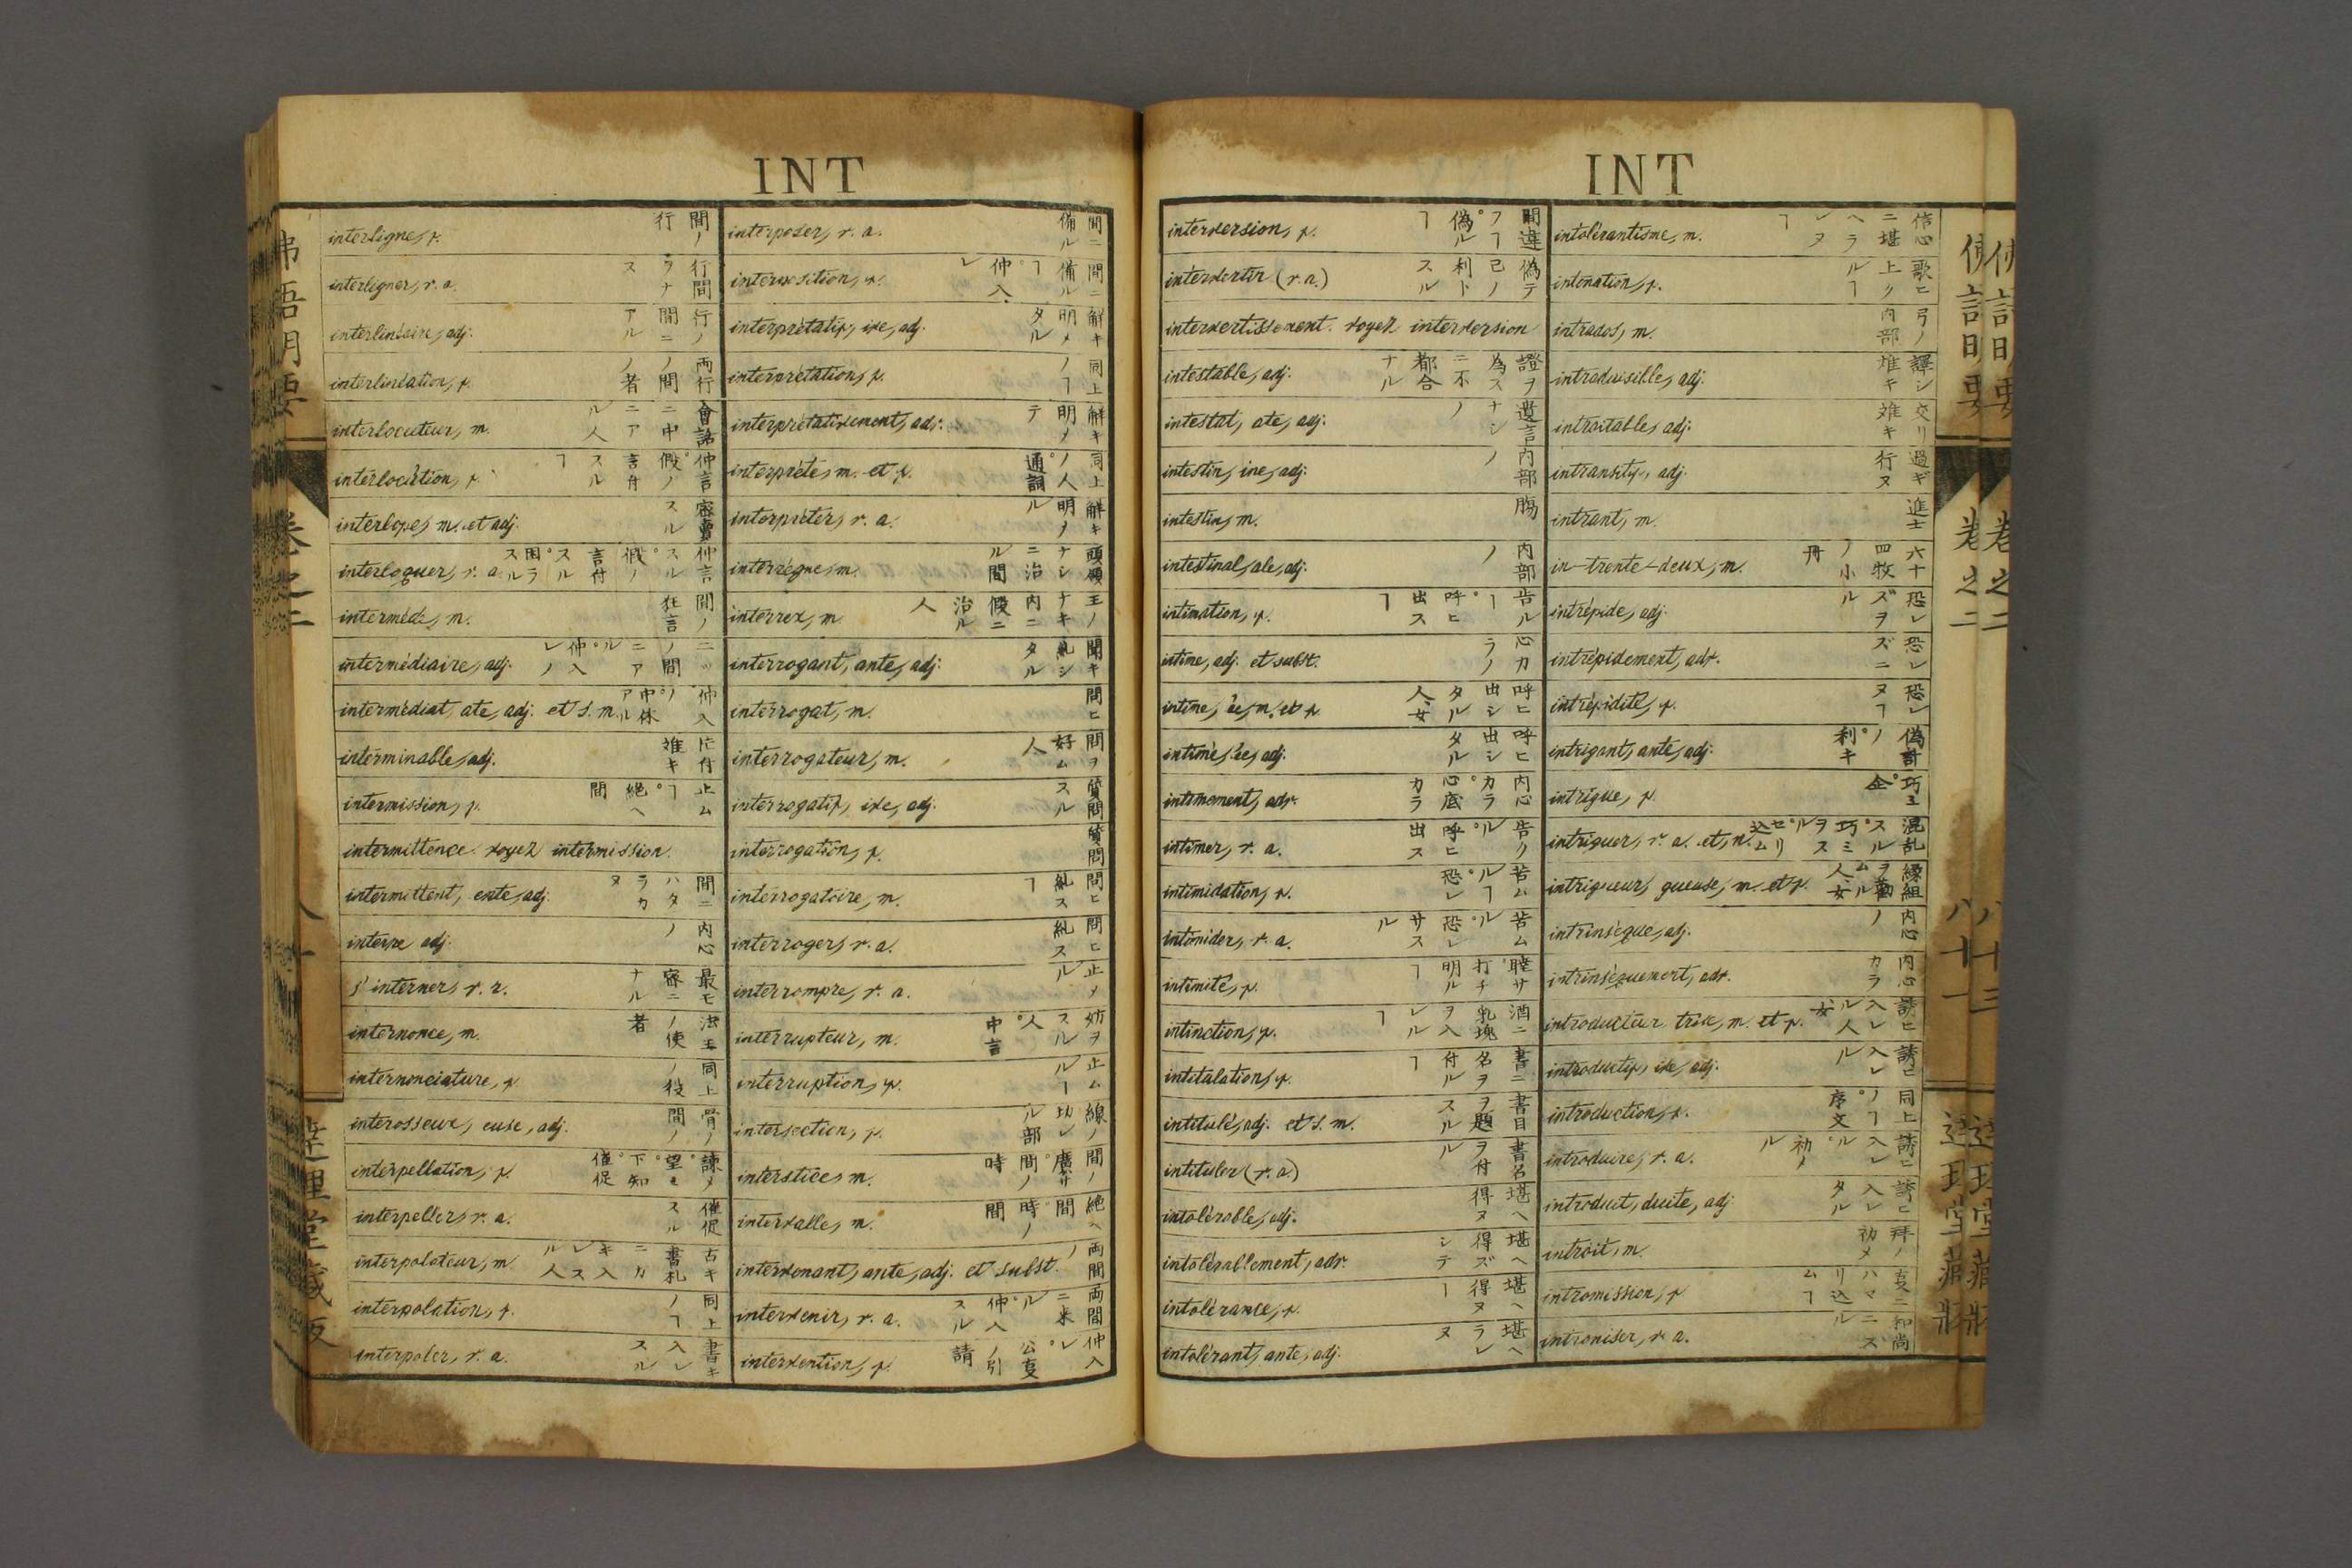 INT
interligne, f. 間ノ行
interligner, v. a. 行間ヲナス
interlinéaire, adj. 行ノ間ニアル
interlinéation, f. 両行ノ間ノ者
interlocuteur, m. 會話ニ中ニアル人
interlocution, f. 仲言。假ノ言付スルヿ
interlope, m. et adj. 密賣スル
interloquer, v. a. 仲言スル。假ノ言付スル。困ラスル
intermède, m. 間ノ狂言
intermédiaire, adj. 二ッノ間ニアル。仲入レノ
intermédiat, ate, adj. et s. m. 仲入ノ。中休アル
interminable, adj. 片付難キ
intermission, f. 止ムヿ。絶ヘ間
intermittence voyez intermission.
intermittent, ente, adj. 間ニハタラカヌ
interne adj. 内心ノ
s'interner, v. r. 最モ密ニナル
internonce, m. 法王ノ使者
internonciature, f. 同上ノ役
interosseux, euse, adj. 骨ノ間ノ
interpellation, f. 諫メ。望ミ。下知。催促
interpeller, v. a. 催促スル
interpolateur, m. 古キ書札ニカキ入レスル人
interpolation, f. 同上ノヿ
interpoler, v. a. 書キ入レスル
interposer, v. a. 間ニ備ル
interposition, f. 間ニ備ルヿ。仲入レ
interprétatif, ive, adj. 解キ明メタル
interprétation, f. 同上ノヿ
interprétativement, adv. 解キ明メテ
interprète, m. et f. 同上ノ人。通詞
interpréter, v. a. 解キ明メル
interrègne, m. 頭領ナシニ治ル間
interrex, m. 王ノナキ内ニ假ニ治ル人
interrogant, ante, adj. 聞キ糺シタル
interrogat, m. 問ヒ
interrogateur, m. 問ヲ好ム人
interrogatif, ive, adj. 質問スル
interrogation, f. 質問
interrogatoire, m. 問ヒ糺スヿ
interroger, v. a. 問ヒ糺ス
interrompre, v. a. 止メル
interrupteur, m. 妨ヲスル人。中言
interruption, f. 止ムルヿ
intersection, f. 線ノ切レル部
interstice, m. 間ノ廣サ。間ノ時
intervalle, m. 絶ヘ間。時ノ間
intervenant, ante, adj. et subst. 両間ノ
intervenir, v. a. 両間ニ来ル。仲入スル
intervention, f. 仲入レ。公事ノ引請
INT
interversion, f. 間違フヿ。偽ルヿ
intervertir (v. a.) 偽テ己ノ利トスル
intervertissement. voyez interversion
intestable, adj. 證ヲ為スニ不都合ナル
intestat, ate, adj. 遺言ナシノ
intestin, ine, adj. 内部ノ
intestin, m. 腸
intestinal, ale, adj. 内部ノ
intimation, f. 告ルヿ。呼ヒ出スヿ
intime, adj. et subst. 心カラノ
intimé, ée, m. et f. 呼ヒ出シタル人、女
intimé, ée, adj. 呼ヒ出シタル
intimement, adv. 内心カラ。心底カラ
intimer, v. a. 告ノル。呼ヒ出ス
intimidation, f. 苦ムルヿ。恐レ
intimider, v. a. 苦ムル。恐レサスル
intimité, f. 睦サ。打チ明ルヿ
intinction, f. 酒ニ乳塊ヲ入レルヿ
intitulation, f. 書ニ名ヲ付ルヿ
intitulé, adj. et s. m. 書目ヲ題スル
intituler (v. a.) 書名ヲ付ル
intolérable, adj. 堪ヘ得ヌ
intolérablement, adv. 堪ヘ得ズシテ
intolérance, f. 堪ヘ得ヌヿ
intolérant, ante, adj. 堪ヘラレヌ
intolérantisme, m. 信心ニ堪ヘラレヌヿ
intonation, f. 歌ヒ上クルヿ
intrados, m. 弓ノ内部
intraduisible, adj. 譯シ難キ
intraitable, adj. 交リ難キ
intransitif, adj. 過ギ行ヌ
intrant, m. 進士
in-trente-deux, m. 六十四枚ノ小冊
intrépide, adj. 恐レズヲル
intrépidement, adv. 恐レズニ
intrépidité, f. 恐レヌヿ
intrigant, ante, adj. 偽計ノ。利キ
intrigue, f. 巧ミ。企
intriguer, v. a. et, n. 混乱スル。巧ミヲスル。セリ込ム
intrigueur, gueuse, m. et f. 縁組ヲ勸ムル人、女
intrinsèque, adj. 内心ノ
intrinsèquement, adv. 内心カラ
introducteur trice, m. et f. 請ヒ入レル人、女
introductif, ive, adj. 請ヒ入レル
introduction, f. 同上ノヿ。序文
introduire, v. a. 請ヒ入レル。初メル
introduit, duite, adj. 請ヒ入レタル
introït, m. 拜ノ初メ
intromission, f. ハマリ込ムヿ
introniser, v. a. 和尚ニズル
卷之二
八十一
八十三